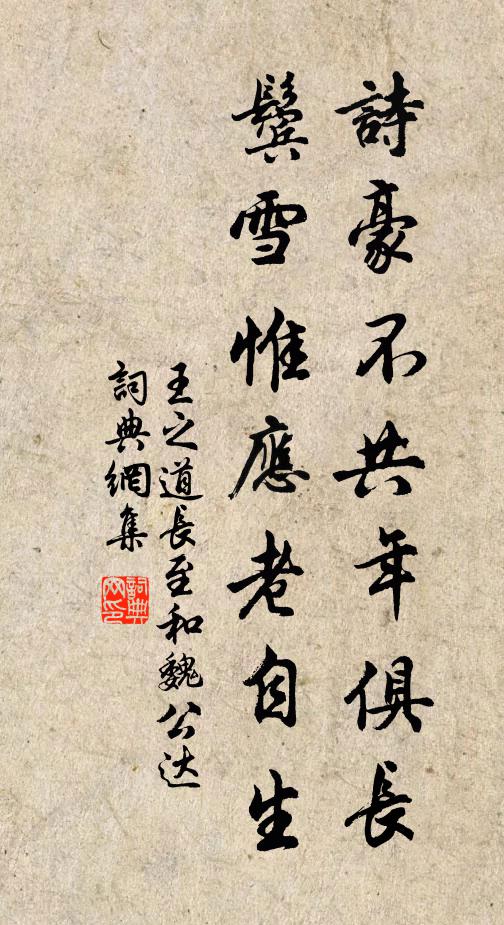 詩豪不共年俱長
鬓雪惟應老自生
王之道長至和魏公达
詞典網集
詞典網印